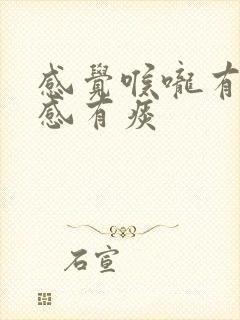 感覺喉嚨有
感有痰
石宣